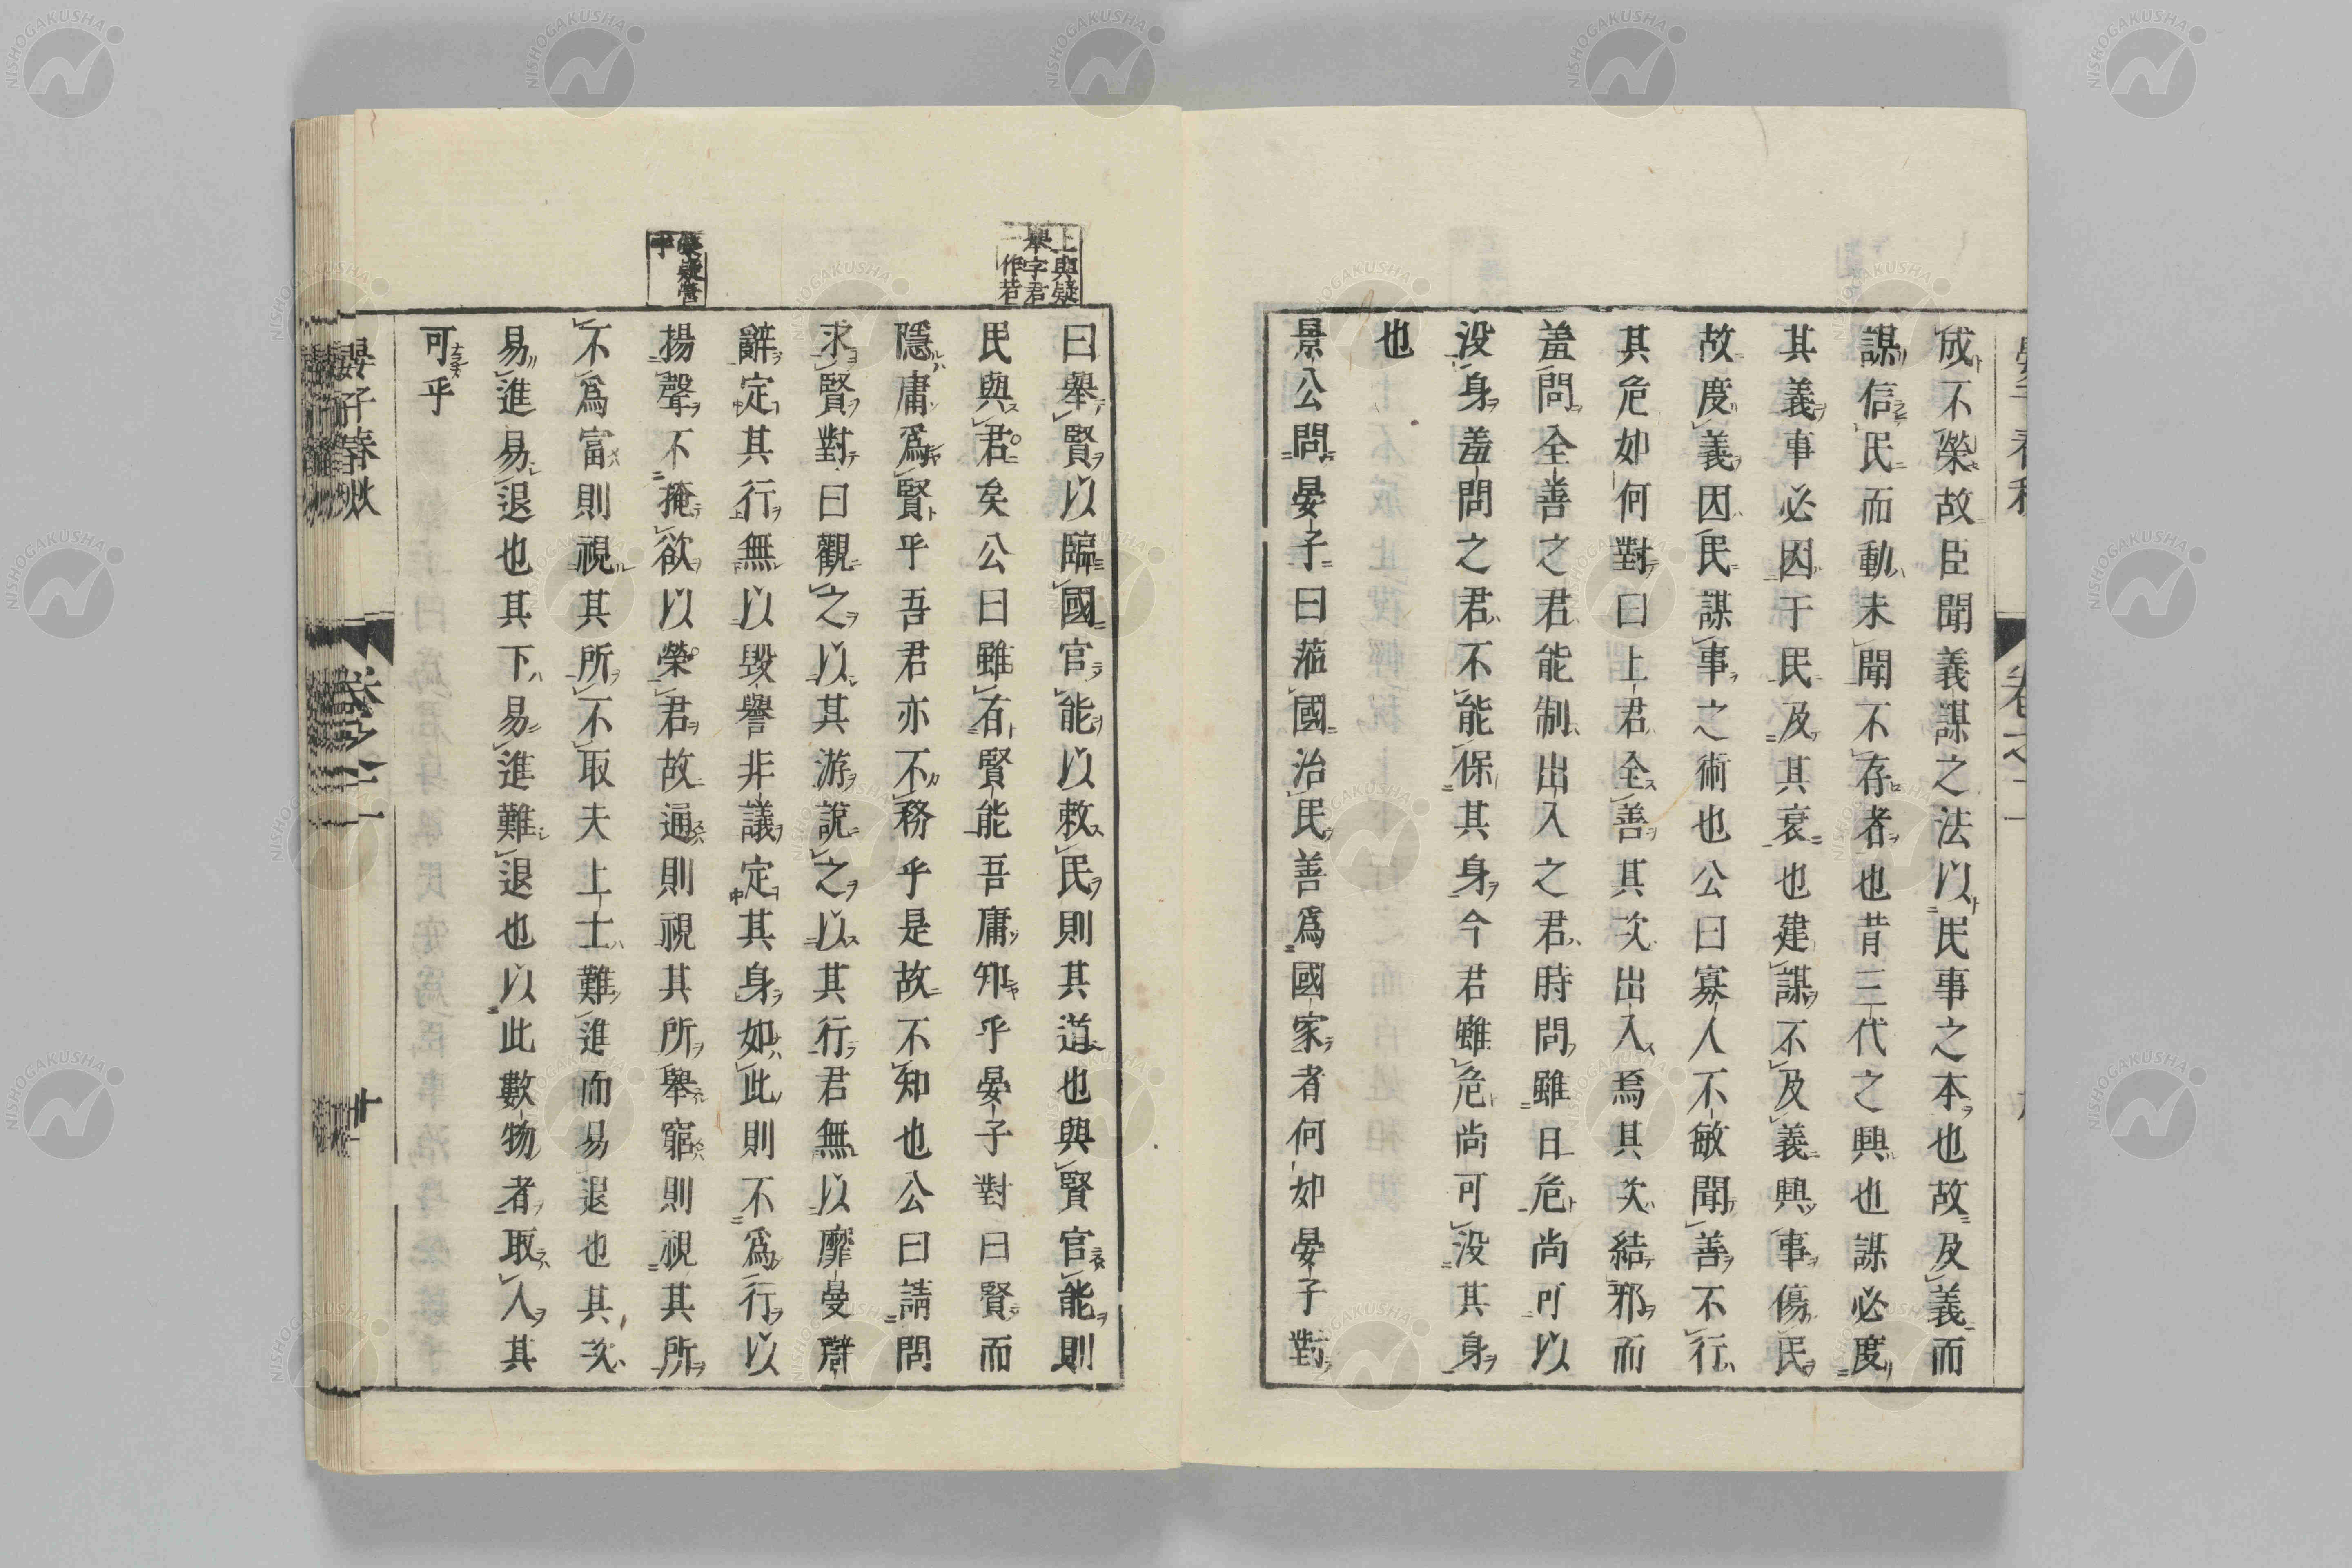 成不榮故臣聞義謀之法以民事之本也故及義而
謀信民而動未聞不存者也昔三代之興也謀必度
其義事必因于民及其衰也建謀不及義興事傷民
故度義因民謀事之術也公曰寡人不敏聞善不行
其危如何對曰上君全善其次出入焉其次結邪而
羞問全善之君能制出入之君時問雖日危尚可以
没身羞問之君不能保其身今君雖危尚可没其身
也
景公問晏子曰蒞國治民善爲國家者何如晏子對
上與疑
舉字君
一作若
曰舉賢以臨國官能以敕民則其道也舉賢官能則
民與君矣公曰雖有賢能吾庸知乎晏子對曰賢而
隱庸爲賢乎吾君亦不務乎是故不知也公曰請問
求賢對曰觀之以其游說之以其行君無以靡曼辯
辭定其行無以毀譽非議定其身如此則不爲行以
榮疑營
字
揚聲不掩欲以榮君故通則視其所舉窮則視其所
不爲富則視其所不取夫上士難進而易退也其次
易進易退也其下易進難退也以此數物者取人其
可乎
晏子春秋
卷之二
十